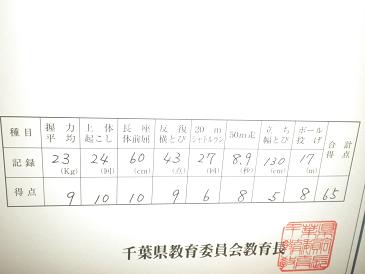 種目 握力平均 上体起こし 長座体前屈 反復横とび 20mシャトルラン 50m走 立ち幅とび ボール投げ 合計得点
記録 23(Kg) 24(回) 60(cm) 43(点) 27(回) 8.9(秒) 130(cm) 17(m)
得点 9 10 10 9 6 8 5 8 65
千葉県教育委員会教育長